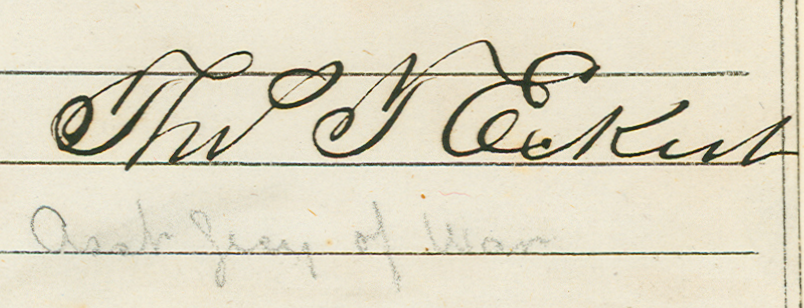 Thos T Eckert
Asst Secy of War